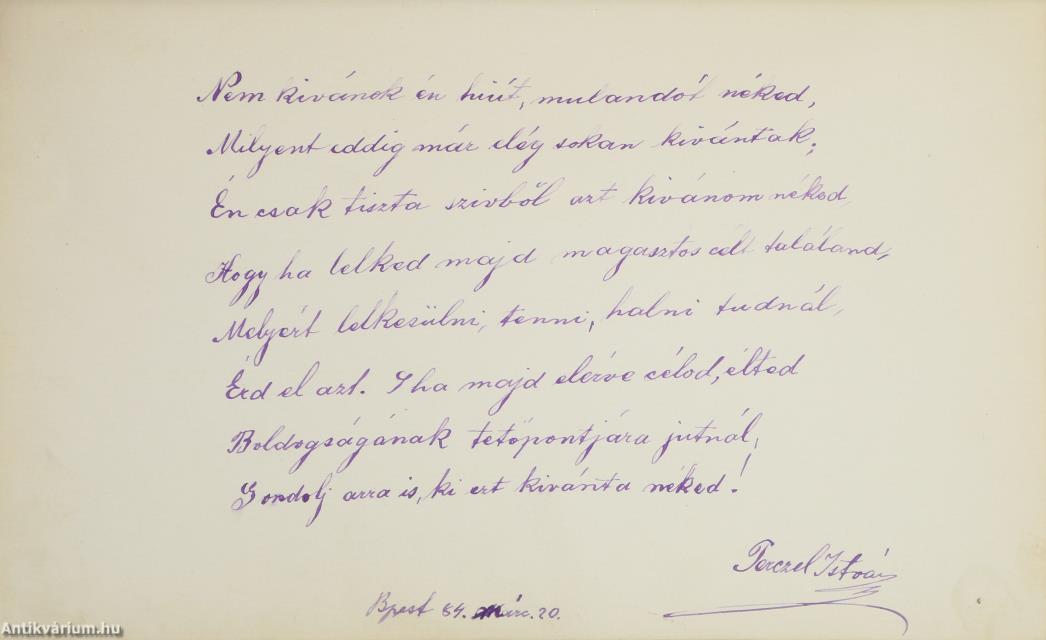 Nem kivánok én hiút, mulandót néked,
Milyent eddig már elég sokan kivántak;
Én csak tiszta szivből azt kivánom néked,
Hogy ha lelked majd magasztos célt találand,
Melyért lelkesülni, tenni, halni tudnál,
Érd el azt. S ha majd elérve célod, élted
Boldogságának tetőpontjára jutnál,
Gondolj arra is, ki ezt kivánta néked!
Perczel István
Bpest 84. márc. 20.
Antikvárium.hu